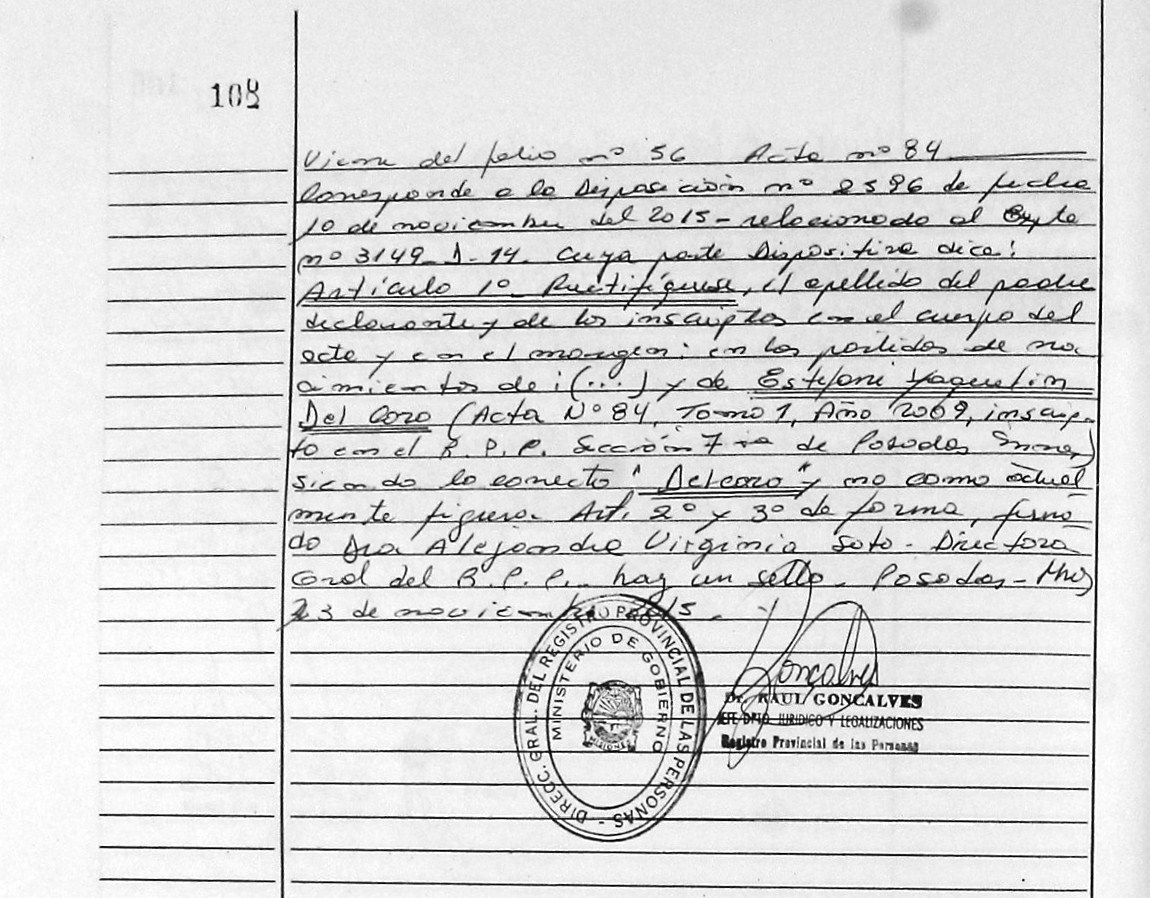 108
Viene del folio nº 56 Acta nº 84
Corresponde a la Disposición nº 2596 de fecha
10 de noviembre del 2015 - relacionado al Expte
nº 3149-D-14. Cuya parte Dispositiva dice:
Artículo 1º Rectifíquese, el apellido del padre
declarante y de los inscriptos en el cuerpo del
acta y en el margen: en las partidas de na
cimientos de: (...) y de Estefani Yaquelin
Del Coro (Acta Nº 84, Tomo 1, Año 2009, inscrip-
to en el R.P.P. Sección 7ma de Posadas Mnes)
siendo lo correcto "Delcoro" y no como actual
mente figura. Art. 2º y 3º de forma, firma
do Dra Alejandra Virginia Soto - Directora
Gral del R.P.P. hay un sello. Posadas - Mnes
23 de noviembre 2015.
DIRECC. GRAL. DEL REGISTRO PROVINCIAL DE LAS PERSONAS -
MINISTERIO DE GOBIERNO
MISIONES
Goncalves
Dr. RAUL GONCALVES
JEFE DPTO. JURIDICO Y LEGALIZACIONES
Registro Provincial de las Personas